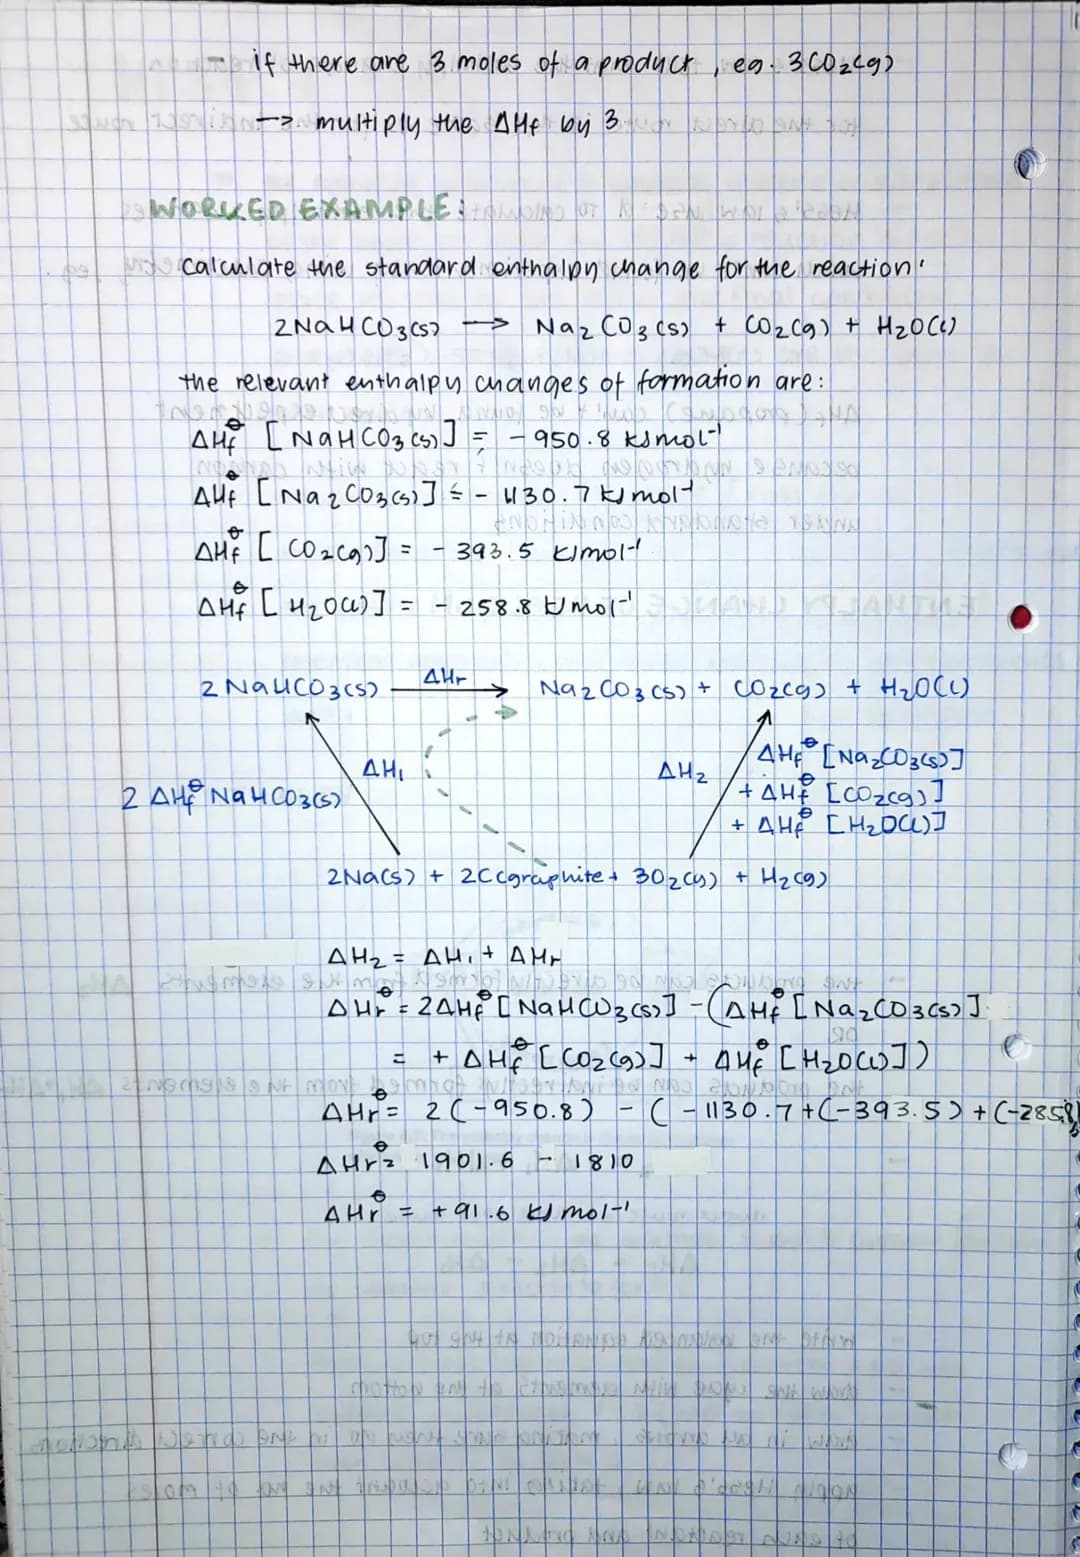 - if there are 3 moles of a product, eg. 3CO₂(g)
→ multiply the ΔHf by 3
WORKED EXAMPLE:
Calculate the standard enthalpy change for the reaction:
2NaHCO₃(s) → Na₂CO₃(s) + CO₂(g) + H₂O(l)
the relevant enthalpy changes of formation are:
ΔHf⦵ [NaHCO₃(s)] = -950.8 kJmol⁻¹
ΔHf⦵ [Na₂CO₃(s)] = -1130.7 kJmol⁻¹
ΔHf⦵ [CO₂(g)] = -393.5 kJmol⁻¹
ΔHf⦵ [H₂O(l)] = -258.8 kJmol⁻¹
2NaHCO₃(s) ΔHr → Na₂CO₃(s) + CO₂(g) + H₂O(l)
ΔH₁
ΔH₂
ΔHf⦵ [Na₂CO₃(s)]
2 ΔHf⦵ NaHCO₃(s)
+ ΔHf⦵ [CO₂(g)]
+ ΔHf⦵ [H₂O(l)]
2Na(s) + 2C(graphite + 3O₂(g) + H₂(g)
ΔH₂ = ΔH₁ + ΔHr
ΔHr⦵ = 2ΔHf⦵ [NaHCO₃(s)] - (ΔHf⦵ [Na₂CO₃(s)]
= + ΔHf⦵ [CO₂(g)] + ΔHf⦵ [H₂O(l)])
ΔHr⦵ = 2(-950.8) - (-1130.7+(-393.5)+(-285.8)
ΔHr⦵ = 1901.6 - 1810
ΔHr⦵ = +91.6 kJmol⁻¹